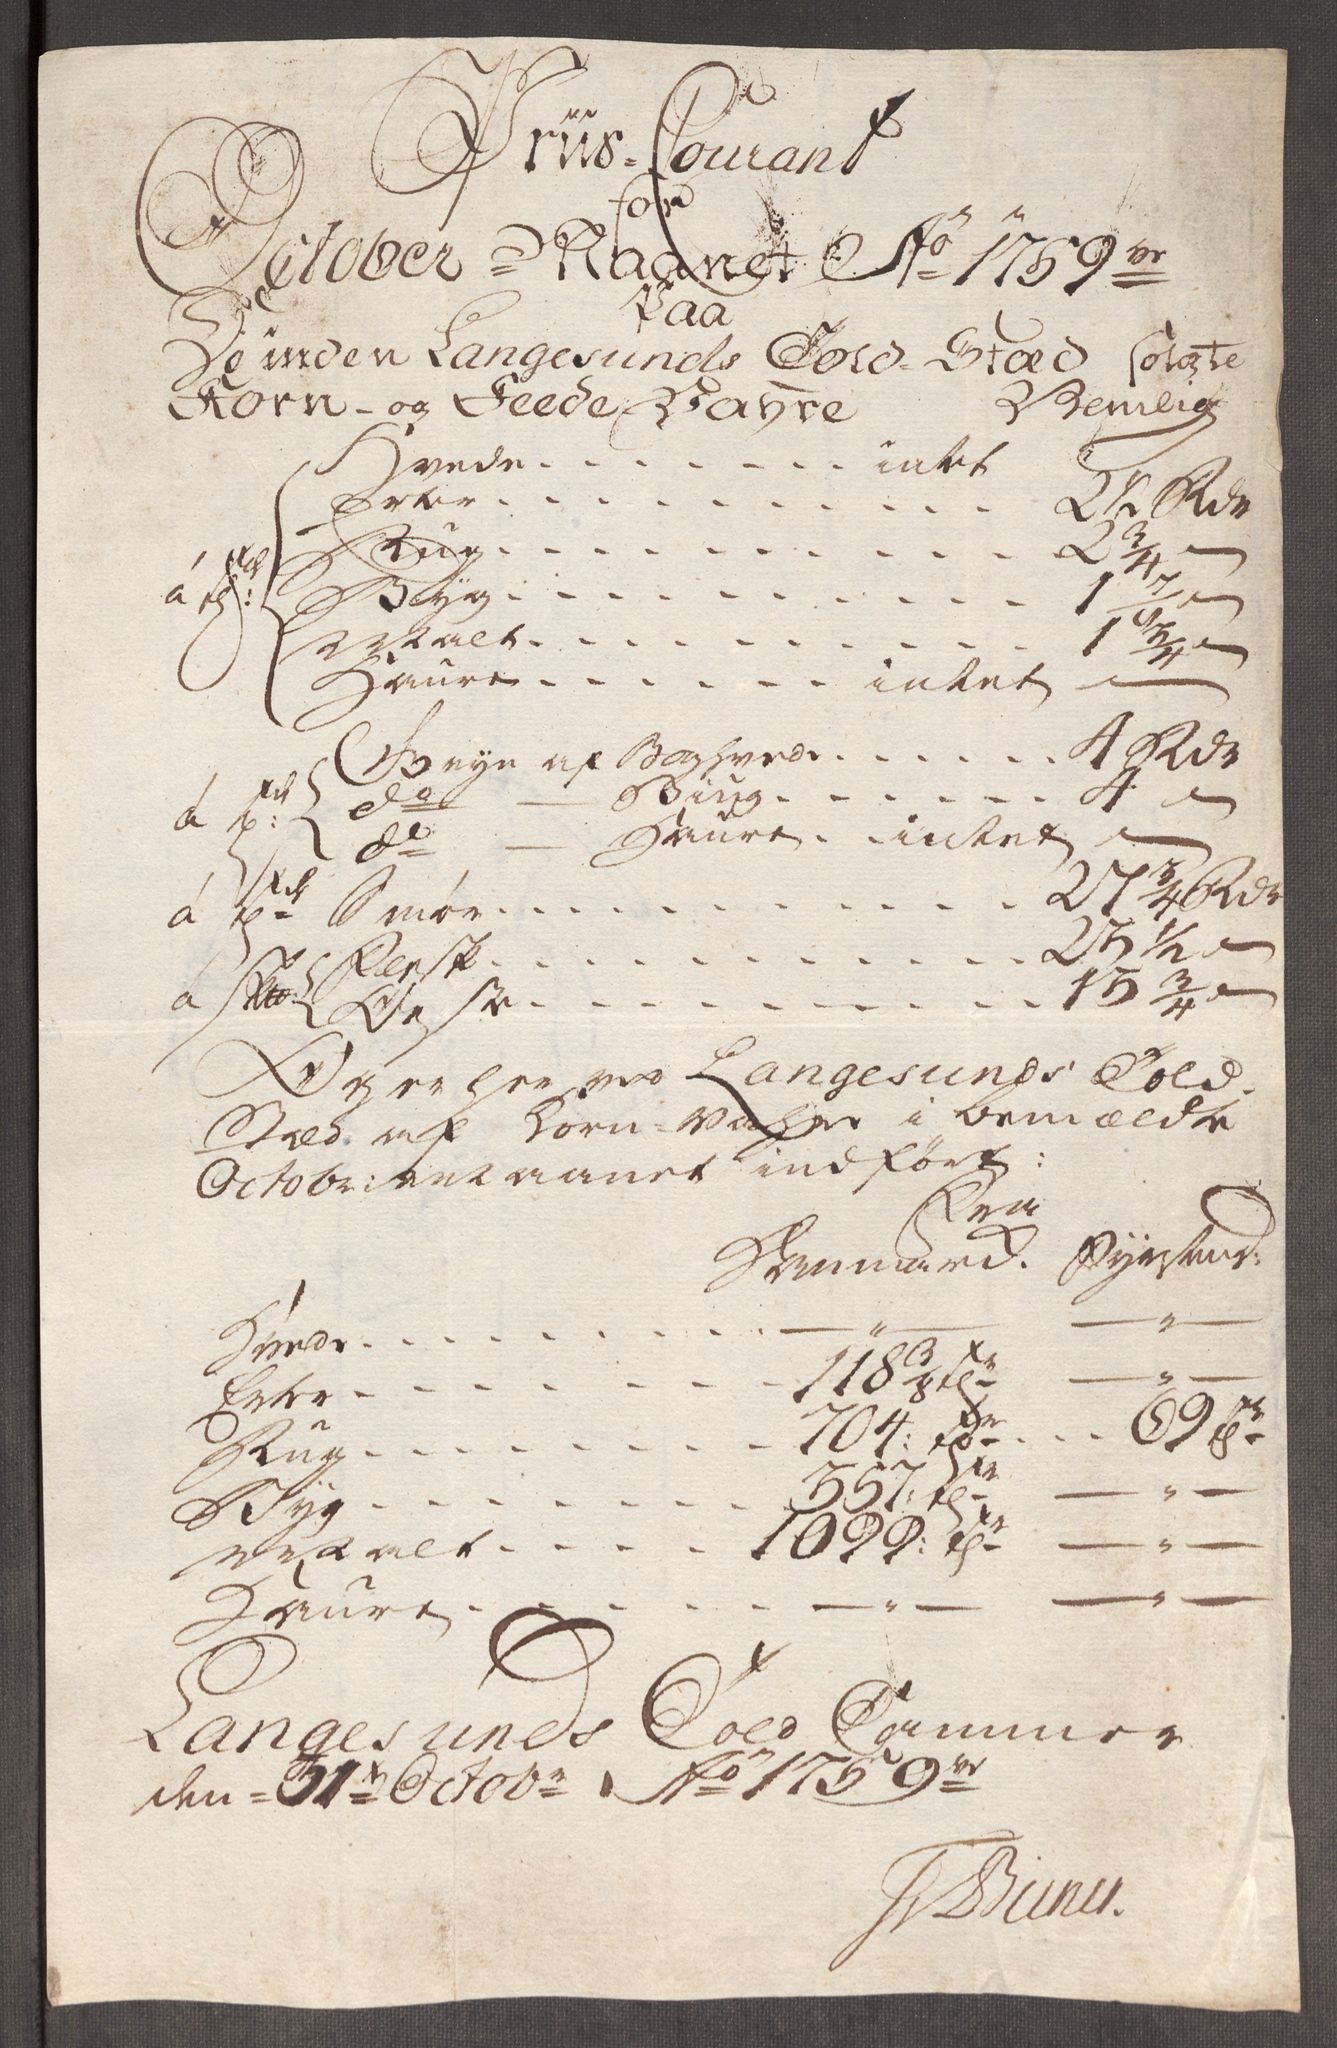 Priis-Courant
for
October = Maanet Ao 1759 ve
Paa
De inden Langesunds Told-Stæd solgte
Korn- og Feede Vahre Nemlig
Hvede . . . . . . . intet
Erter . . . . . . . . . . . 2½ Rdr
Rug . . . . . . . . . . . 2 3/4 "
á tde: Byg . . . . . . . . . . . 1
Malt . . . . . . . . . . . 1 3/4 "
Haure . . . . . . intet
Gryn af Boghvede . . . . . 4 Rdr
á tde: do — Biug . . . . . . 4 "
do — Haure . . intet
á tde Smør . . . . . . . . . . . 21 3/4 Rdr
Flesk . . . . . . . . . . . 25 1/2 "
á . . . . . . . . . . . 15 3/4 "
Og er her ved Langesunds Told-
Stæd af Korn-Vahre i bemældte
Octobr: Maanet indført:
Fra
Danmarck. Tydskland:
Hvede . . . . . . . — " — — " —
Erter . . . . . . . 118 3/8 tdr — " —
Rug . . . . . . . 704: tdr . . . 69 tdr
Byg . . . . . . . 357: tdr — " —
Malt . . . . 1099: tdr — " —
Haure . . . . . . — " — — " —
Langesunds Told Cammer
den = 31te Octobr Ao 1759 ve